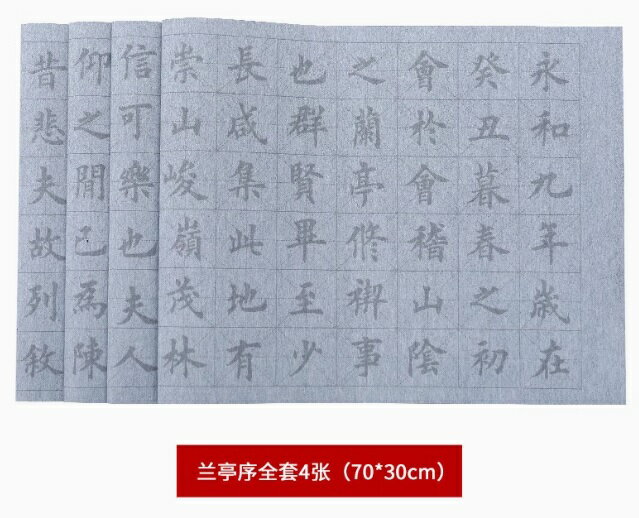 永和九年歳在
癸丑暮春之初
會於會稽山陰
之蘭亭修禊事
也群賢畢至少
長咸集此地有
崇山峻嶺茂林
信可樂也夫人
仰之閒已爲陳
昔悲夫故列敘
兰亭序全套4张（70*30cm）